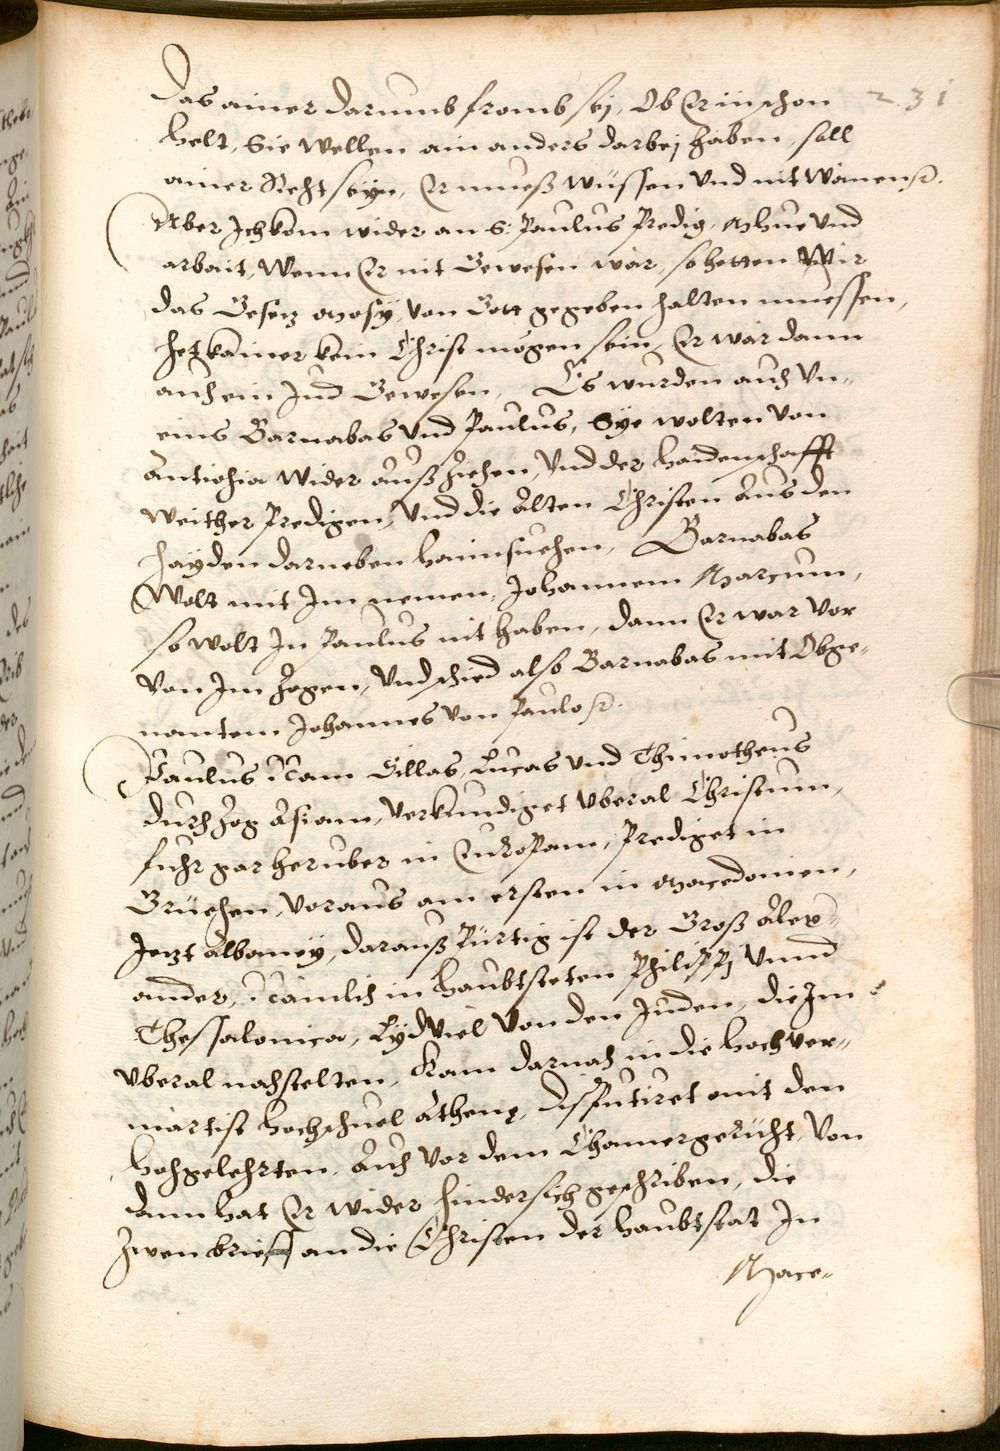 231
das ainer darumb fromb sej, Ob Er in schon
helt, Sie wellen ain anders darbej haben, soll
ainer Reht seyn, Er mueß wüssen vnd nit wänen.
Aber Jch kom wider an S: Paulus Predig, Mhue vnd
arbait, Wenn Er nit Gewesen wär, so hetten Wir
das Gesez Mosÿ, von Gott gegeben halten muessen,
het kainer kein Christ mögen sein, Er wär dann
auch ein Jud Gewesen, Es wurden auch Vn-
eins Barnabas vnd Paulus, Sÿe wolten von
Antiohia wider auß ziehen, vnd der haidenschafft
weither Predigen, vnd die alten Christen aus den
Hayden darneben haimsuehen, Barnabas
Wolt mit Jm nemen, Johannem Marcum,
so wolt Jn Paulus nit haben, dann Er war vor
von Jm zogen, vnd schied also Barnabas mit Obge-
nantem Johannes von Paulo.
Paulus nam Sillas, Lucas vnd Thimotheus
durch zog Asiam, verkundiget vberal Christum,
fuhr gar heruber in Europam, Prediget in
Grüehen, voraus am ersten in Macedonien,
Jezt Albaneÿ, darauß Pürtig ist der Groß Alex-
ander, nämlich in haubtsteten Philippj vnnd
Thessalonica, Lÿd viel von den Juden, die Jm
vberal nachstelten, Kam darnach in die hochver-
märtist hochschuel Athene, disputiret mit den
hochgelehrten, Auch vor dem Chamergericht, von
dann hat Er wider hindersich geschriben, die
zwen brieff an die Christen der haubtstat Jn
Mace-